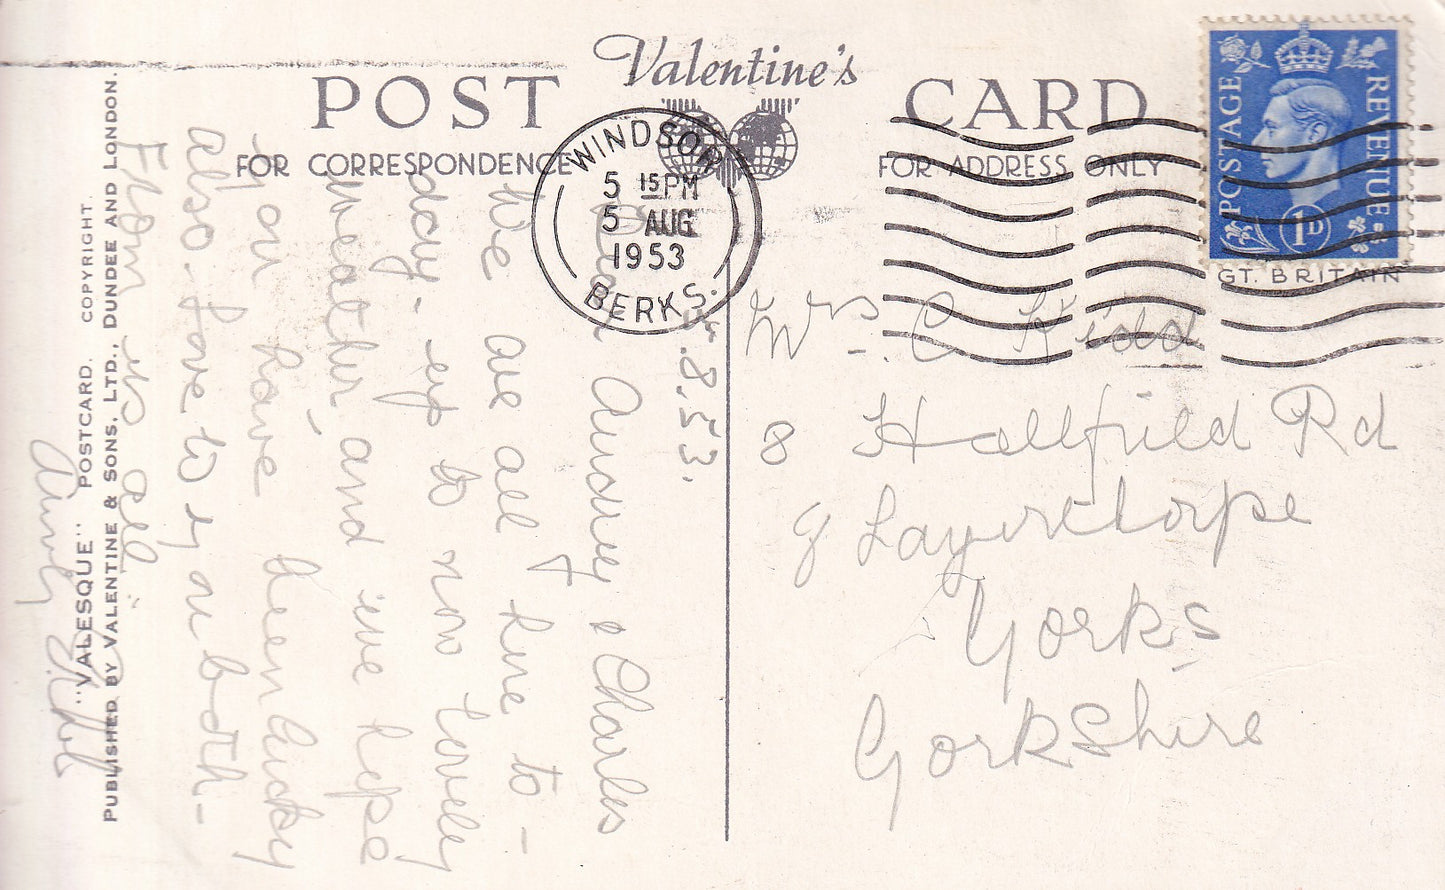 Valentine's
POST CARD
FOR CORRESPONDENCE
FOR ADDRESS ONLY
WINDSOR
5 15 PM
5 AUG
1953
BERKS.
POSTAGE
REVENUE
1D
GT. BRITAIN
"VALESQUE" POSTCARD. COPYRIGHT.
PUBLISHED BY VALENTINE & SONS, LTD., DUNDEE AND LONDON.
.8.53.
Dear Audrey & Charles
We are all fine to-
day - up to now lovely
weather, and we hope
you have been lucky
also. love to you both -
From us all
Mrs. C Kidd
8 Hallfield Rd
Layerthorpe
Yorks
Yorkshire